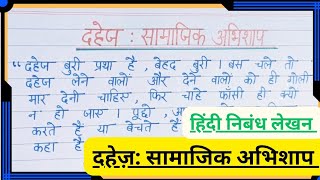 दहेज : सामाजिक अभिशाप
“ दहेज बुरी प्रथा है , बेहद बुरी । बस चले तो
दहेज लेने वालों और देने वालों को ही गोली
मार देनी चाहिए, फिर चाहे फाँसी ही क्यों
न हो जाए । पूछो ,
करते हैं या बेचते हैं
कहा है
हिंदी निबंध लेखन
दहेज़: सामाजिक अभिशाप